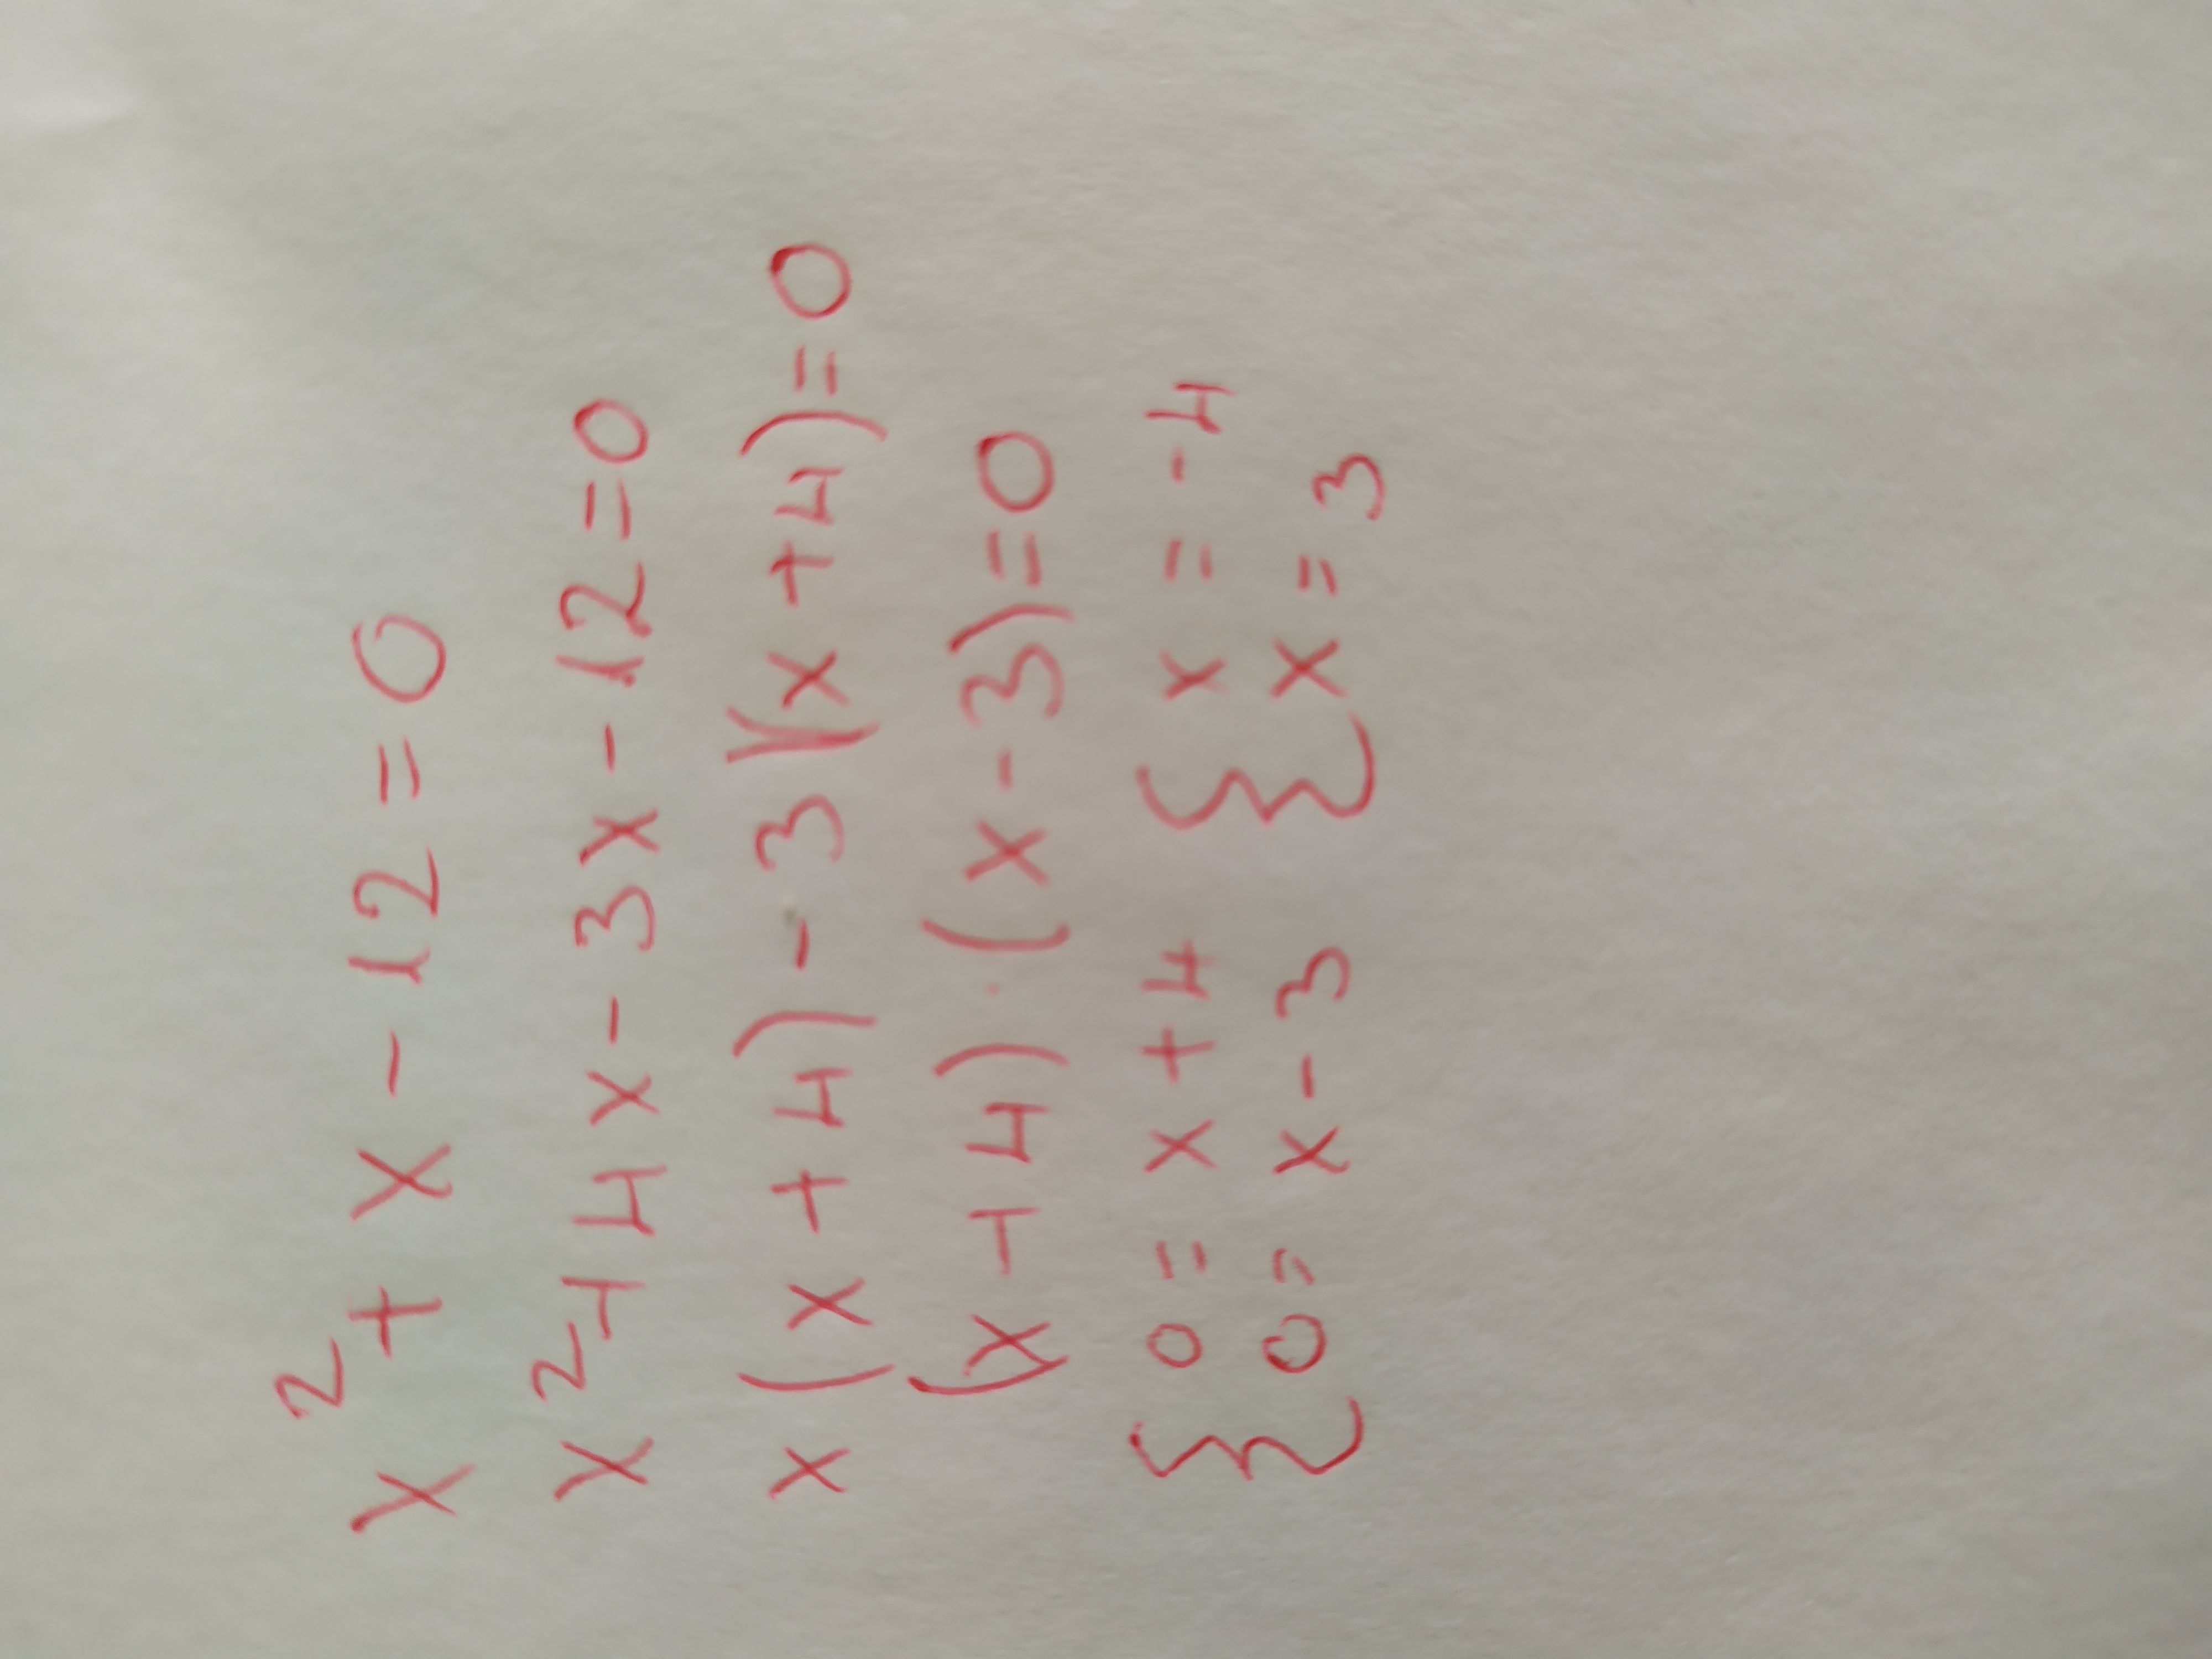 x² + x - 12 = 0
x² + 4x - 3x - 12 = 0
x(x + 4) - 3)(x + 4) = 0
(x + 4) · (x - 3) = 0
{ 0 = x + 4 { x = -4
{ 0 = x - 3 { x = 3